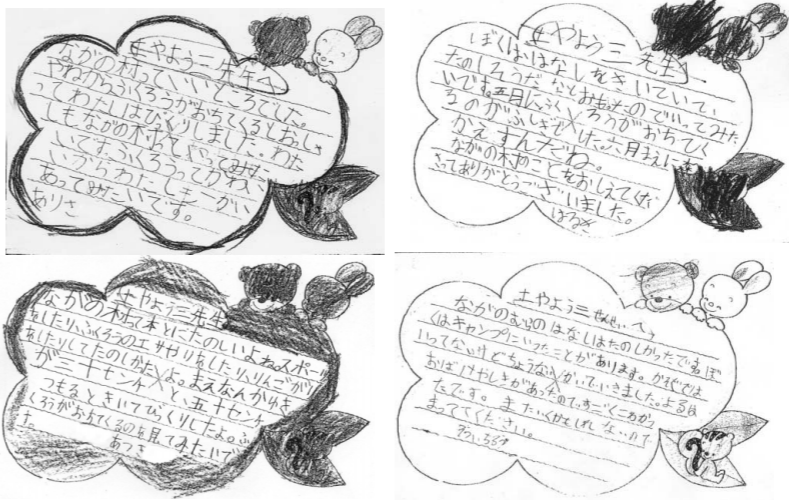 土やよう三先生へ
ながの村っていいところでした。
やねからふくろうがおちてくるとおしえ
ってわたしはびっくりしました。わた
しもながの村へといってみた
いです。ふくろうってかわい
いからわたしも
あってみたいです。
ありさ
土やよう三先生へ
ぼくははなしをきいていて、
たのしそうだなとおもったのでいってみた
いです。五月にふくろうがおちてく
るのがふしぎでした。六月まえに
かえすんだね。
ながの村のことをおしえてくだ
さってありがとうございました。
はるき
土やよう三先生
ながの村ってほんとにたのしいよね。スポーツ
をしたり、ふくろうのエサやりをしたり、りんごがり
をしたりしてたのしかったよ。まえなんかゆき
が三十センチ とか五十センチ
つもるときいてびっくりしたよ。ふ
くろうがおちてくるのを見てみたいで
す。
あつき
土やよう三せんせいへ
ながのむらのはなしはたのしかったです。ぼ
くはキャンプにいったことがあります。かぞくでは
いってないけどようちえんでいきました。よるは
おばけやしきがあったので、すごくこわかっ
たです。またいくかもしれないので
まっててください。